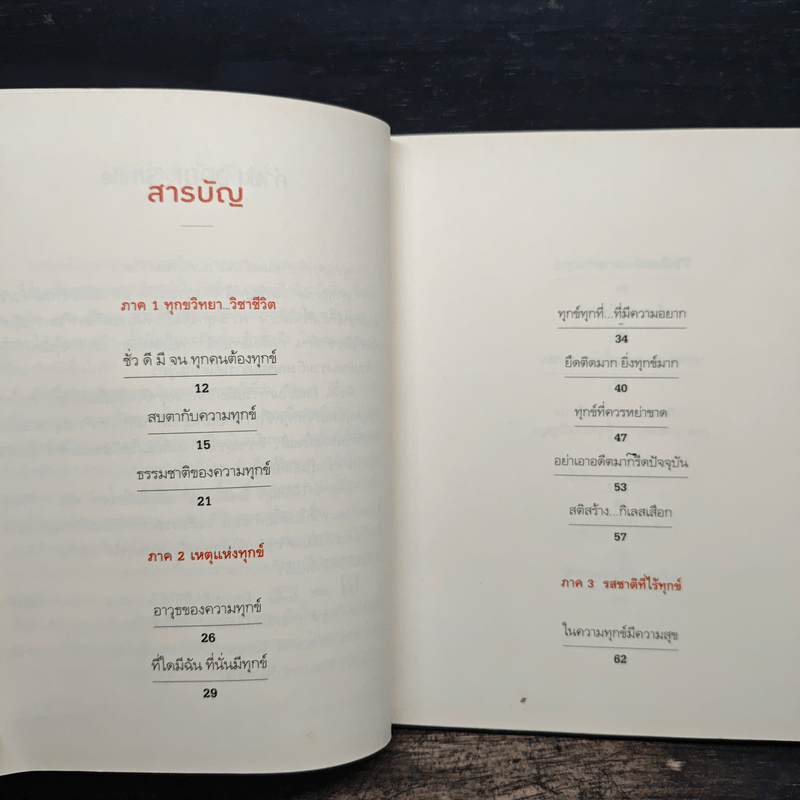 สารบัญ
ภาค 1 ทุกขวิทยา...วิชาชีวิต
ชั่ว ดี มี จน ทุกคนต้องทุกข์
12
สบตากับความทุกข์
15
ธรรมชาติของความทุกข์
21
ภาค 2 เหตุแห่งทุกข์
อาวุธของความทุกข์
26
ที่ใดมีฉัน ที่นั่นมีทุกข์
29
ทุกข์ทุกที่...ที่มีความอยาก
34
ยึดติดมาก ยิ่งทุกข์มาก
40
ทุกข์ที่ควรหย่าขาด
47
อย่าเอาอดีตมากรีดปัจจุบัน
53
สติสร้าง...กิเลสเสือก
57
ภาค 3 รสชาติที่ไร้ทุกข์
ในความทุกข์มีความสุข
62